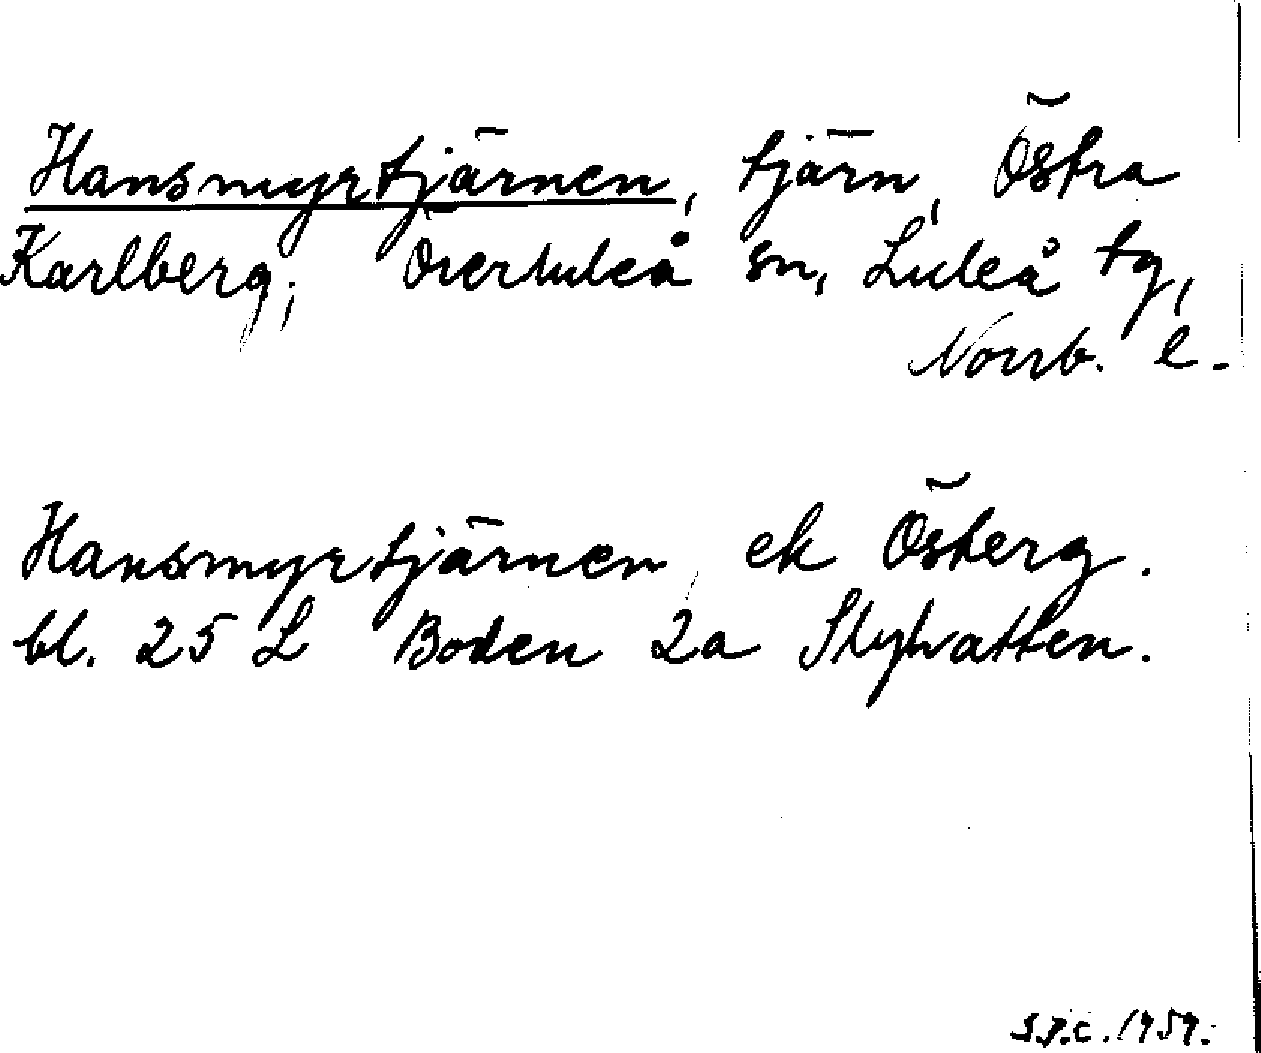 Hansmyrtjärnen, tjärn, Östra
Karlberg; Överluleå sn, Luleå tg,
Norrb. l.
Hansmyrtjärnen, ek Österg.
bl. 25 L Boden 2a Skylvatten.
S.J.C. 1959.